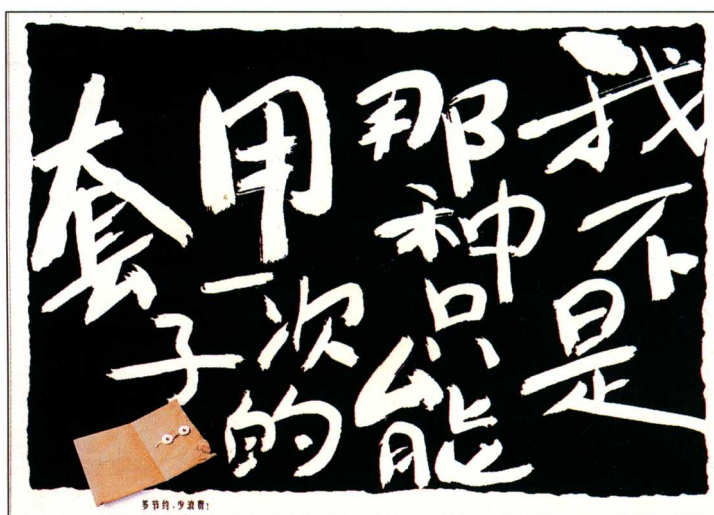 我不是
那种只能
用一次的
套子
多节约,少浪费!